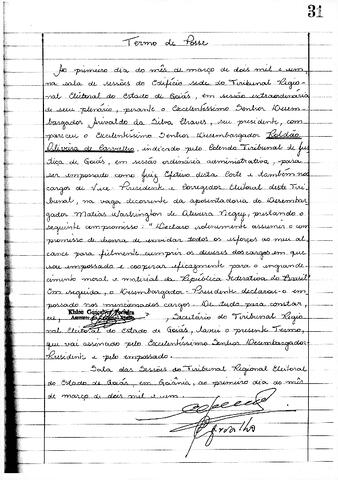 31
Termo de Posse
Ao primeiro dia do mês de março de dois mil e um,
na sala de sessões do Edifício sede do Tribunal Regio-
nal Eleitoral do Estado de Goiás, em sessão extraordinária
de seu plenário, perante o Excelentíssimo Senhor Desem-
bargador Jirivaldo da Silva Chaves, seu presidente, com-
pareceu o Excelentíssimo Senhor Desembargador Roldão
Oliveira de Carvalho, indicado pelo Egrégio Tribunal de Jus-
tiça de Goiás, em sessão ordinária administrativa, para
ser empossado como Juiz Efetivo desta Corte e também nos
cargos de Vice Presidente e Corregedor Eleitoral deste Tri-
bunal, na vaga decorrente da aposentadoria do Desembar-
gador Matias Washington de Oliveira Negry, prestando o
seguinte compromisso: "Declaro solenemente assumir o com-
promisso de honra de envidar todos os esforços ao meu al-
cance para fielmente cumprir os deveres dos cargos em que
sou empossado e cooperar eficazmente para o engrande-
cimento moral e material da República Federativa do Brasil"
Em seguida, o Desembargador-Presidente declarou-o em-
possado nos mencionados cargos. De tudo para constar,
eu, Secretário do Tribunal Regio-
nal Eleitoral do Estado de Goiás, lavrei o presente Termo,
que vai assinado pelo Excelentíssimo Senhor Desembargador-
Presidente e pelo empossado.
Sala das Sessões do Tribunal Regional Eleitoral
do Estado de Goiás, em Goiânia, ao primeiro dia do mês
de março de dois mil e um.